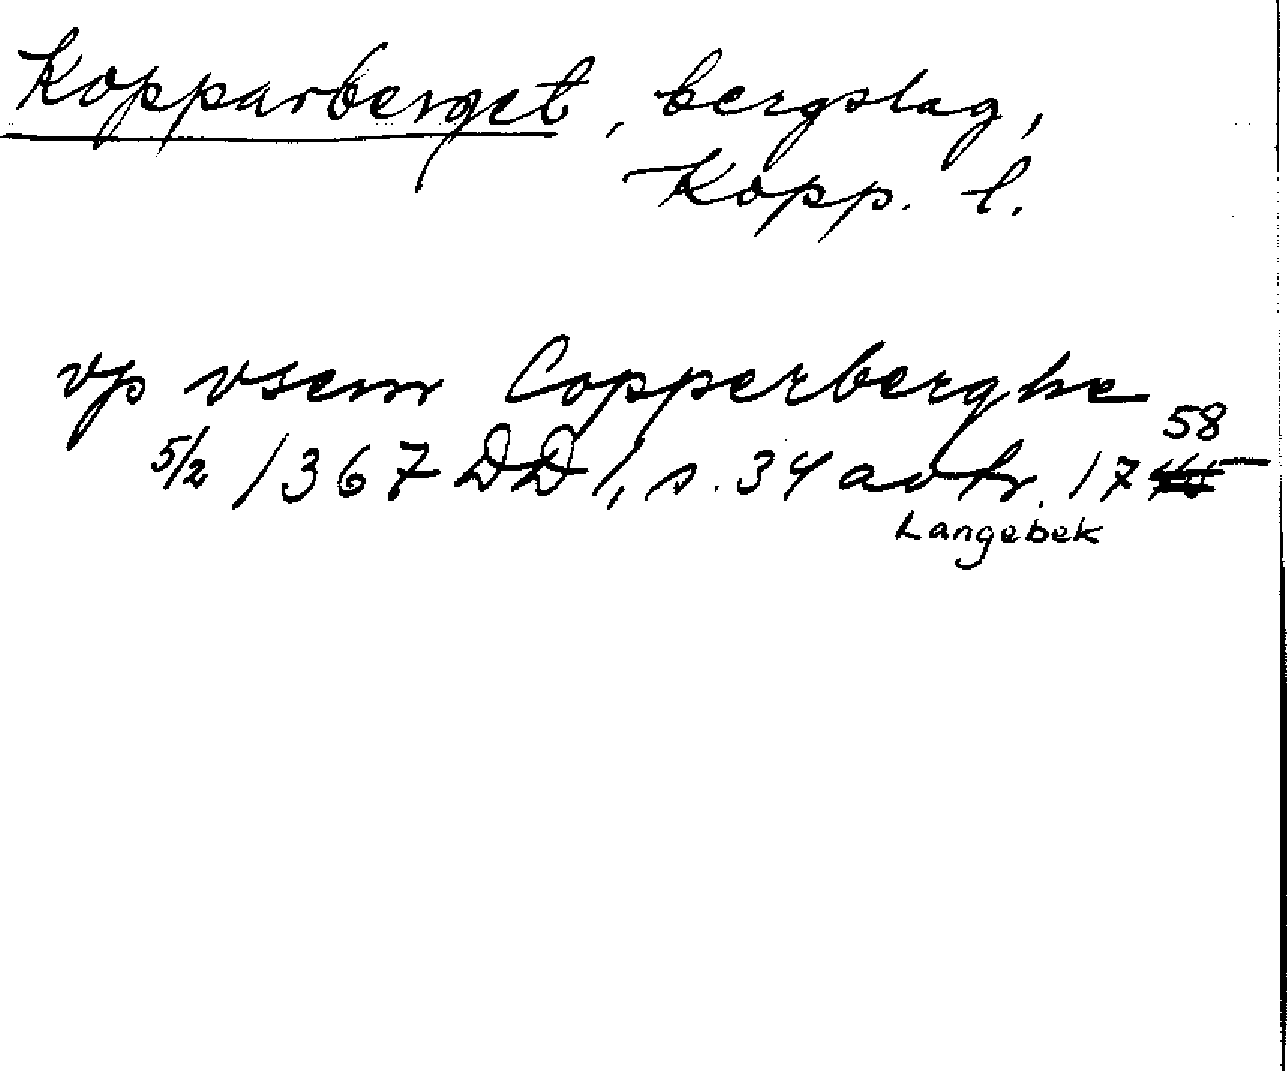 Kopparberget, bergslag,
Kopp. l.
vp vsem Copperberghe
5/2 1367 DD 1, s. 34 avtr. 1758
Langebek